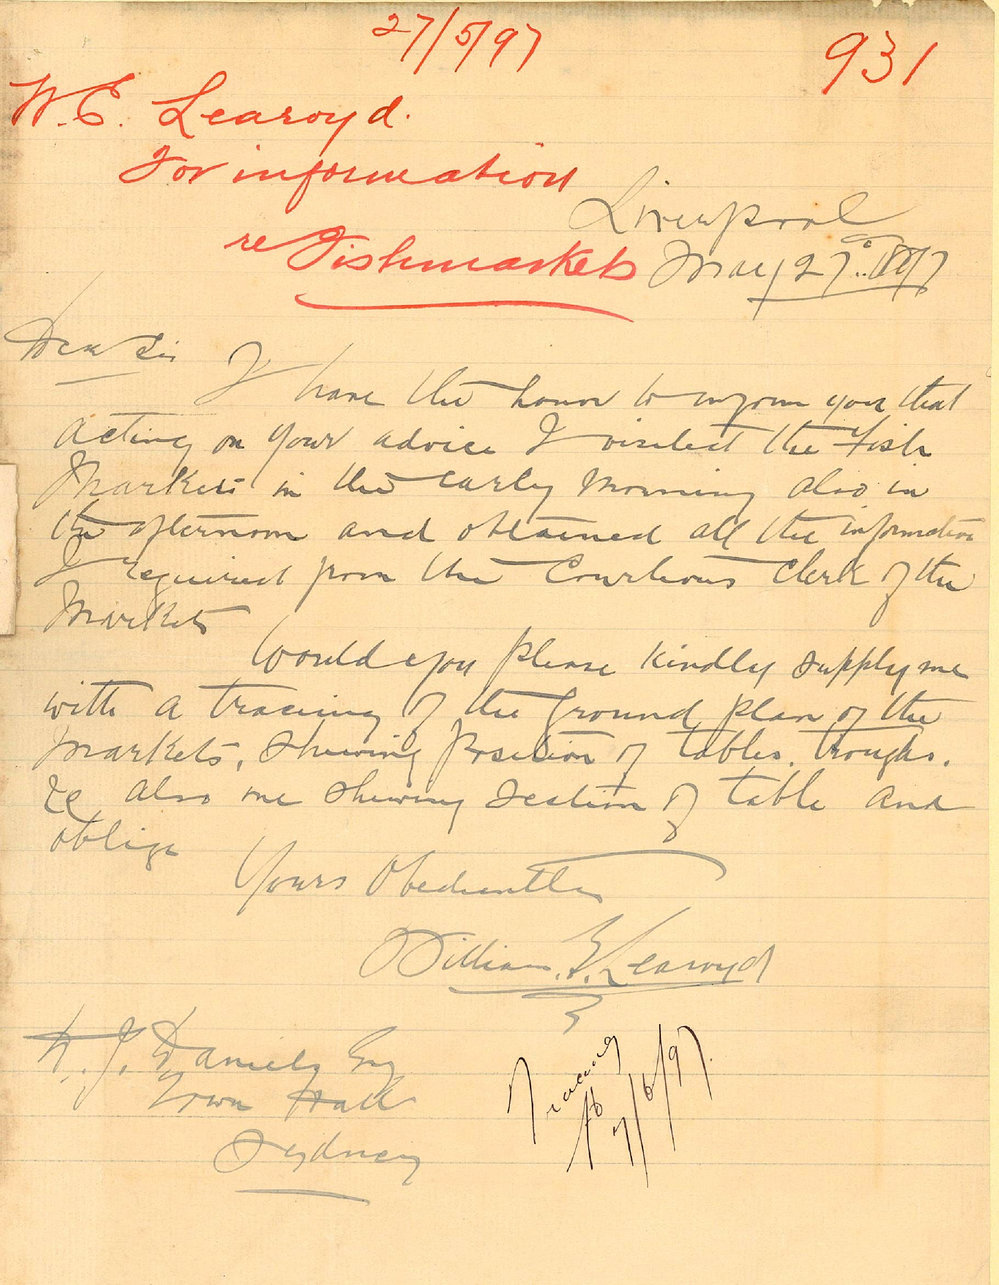 27/5/97
931
W. E. Learoyd.
For information
re Fishmarkets
Liverpool
May 27th 1897
Dear Sir
I have the honor to inform you that
acting on your advice I visited the Fish
Markets in the early morning also in
the afternoon and obtained all the information
I required from the Courteous Clerk of the
Markets
Would you please kindly supply me
with a tracing of the Ground plan of the
Markets, shewing position of tables, troughs,
&c also one shewing section of table and
oblige
Yours Obediently
William. E. Learoyd
Daniels Esq
Town Hall
Sydney
Tracing
7/6/97.